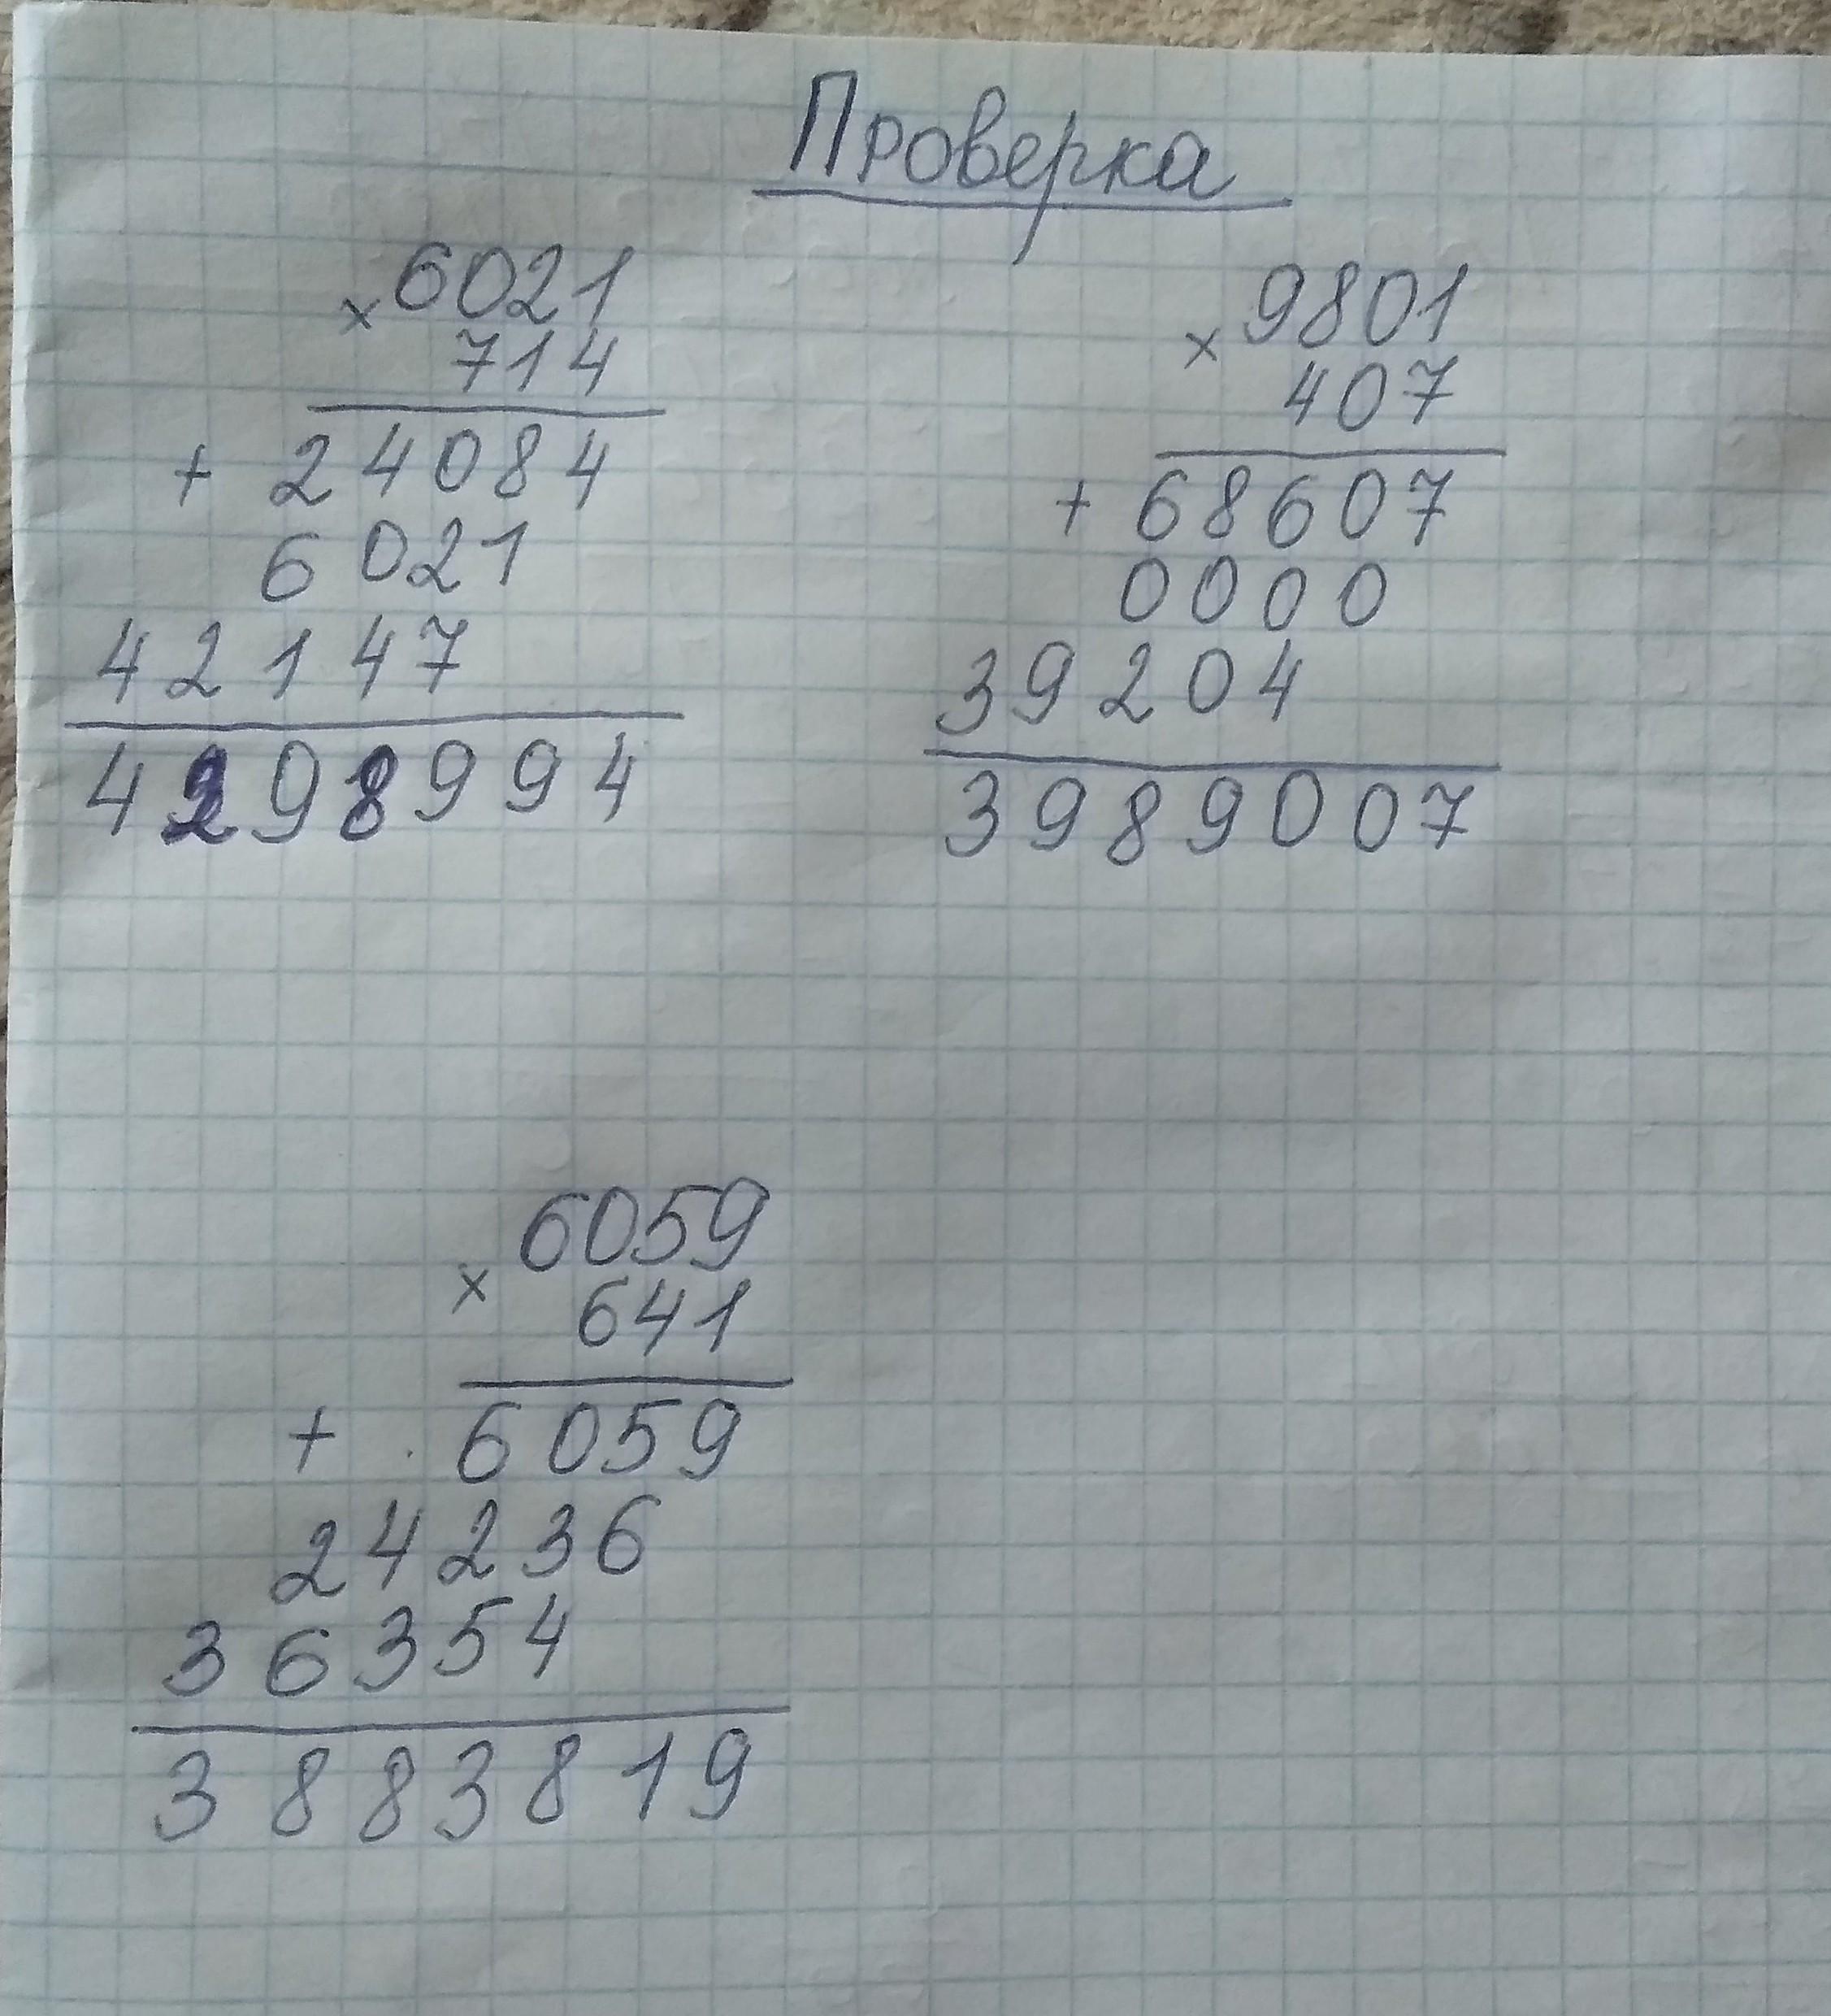 Проверка
× 6021
714
+ 24084
6021
42147
4298994
× 9801
407
+ 68607
0000
39204
3989007
× 6059
641
+ 6059
24236
36354
3883819